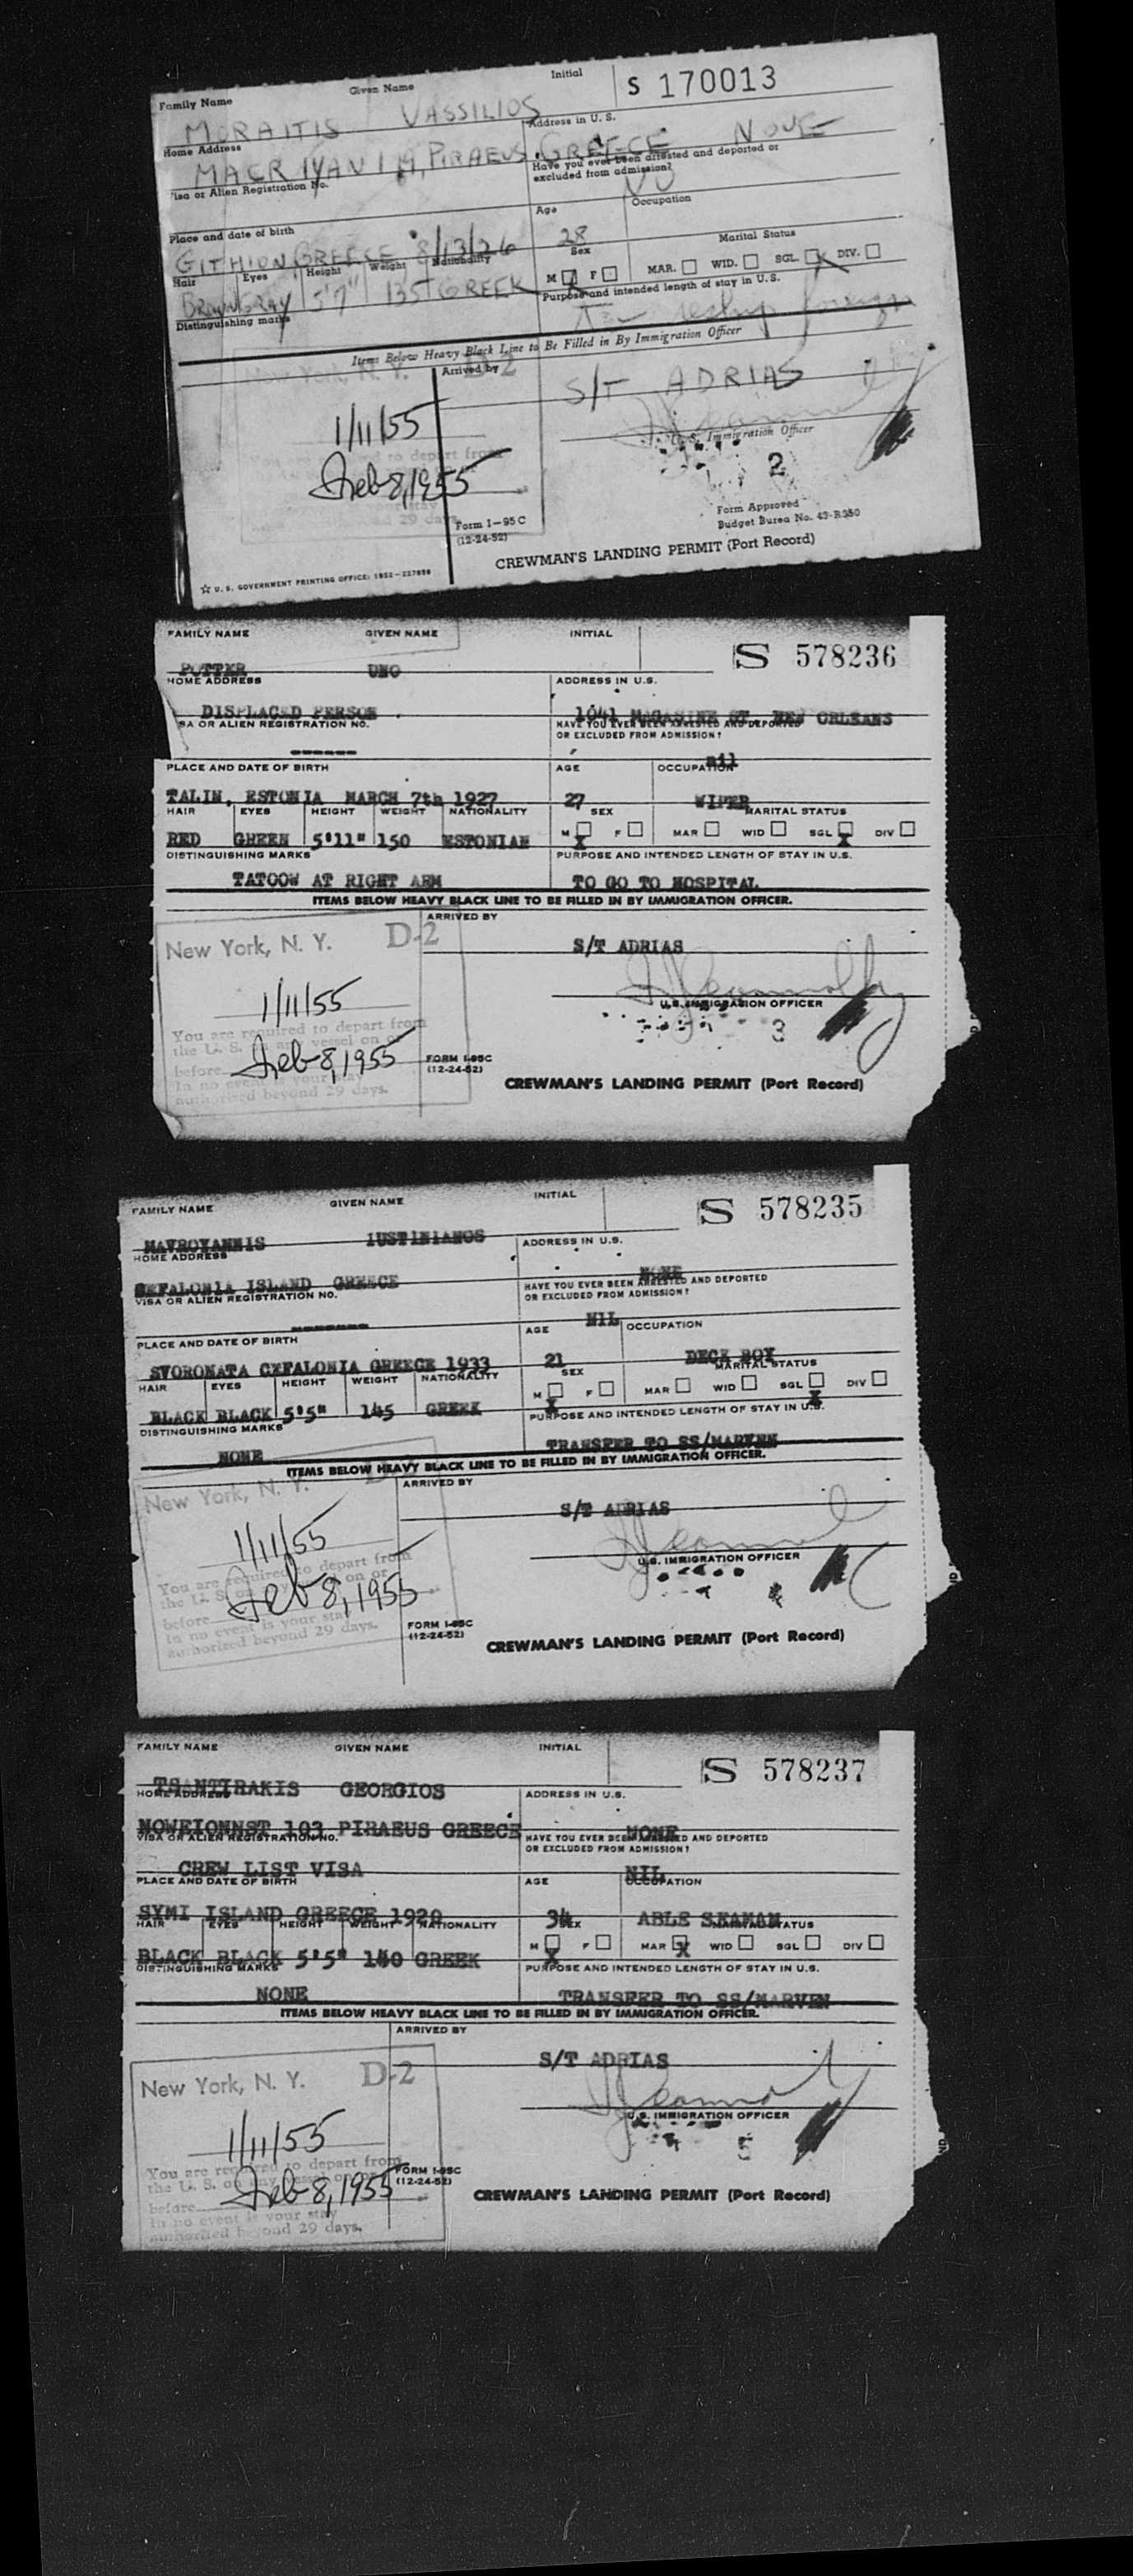 Family Name Given Name Initial S 170013
MORAITIS VASSILIOS
Home Address Address in U. S.
PIRAEUS, GREECE NONE
Visa or Alien Registration No. Have you ever been arrested and deported or
excluded from admission?
NO
Place and date of birth Age Occupation
GITHION GREECE 8/13/26 28
Hair Eyes Height Weight Nationality Sex Marital Status
M F MAR. WID. SGL. DIV.
BROWN GRAY 5'7" 135 GREEK X X
Distinguishing marks Purpose and intended length of stay in U.S.
reship foreign
Items Below Heavy Black Line to Be Filled in By Immigration Officer
New York, N. Y. D-2 Arrived by
S/T ADRIAS
1/11/55
U. S. Immigration Officer
Feb 8, 1955
2
Form Approved
Budget Bureau No. 43-R350
Form I-95 C
(12-24-52)
CREWMAN'S LANDING PERMIT (Port Record)
☆ U. S. GOVERNMENT PRINTING OFFICE: 1952-227898
FAMILY NAME GIVEN NAME INITIAL S 578236
POTTER UNO
HOME ADDRESS ADDRESS IN U.S.
DISPLACED PERSON 1041 MAGASINE ST. NEW ORLEANS
SA OR ALIEN REGISTRATION NO. HAVE YOU EVER BEEN ARRESTED AND DEPORTED
OR EXCLUDED FROM ADMISSION?
------ nil
PLACE AND DATE OF BIRTH AGE OCCUPATION
TALIN, ESTONIA MARCH 7th 1927 27 WIPER
HAIR EYES HEIGHT WEIGHT NATIONALITY SEX MARITAL STATUS
M F MAR WID SGL DIV
RED GREEN 5'11" 150 ESTONIAN X X
DISTINGUISHING MARKS PURPOSE AND INTENDED LENGTH OF STAY IN U.S.
TATOOW AT RIGHT ARM TO GO TO HOSPITAL
ITEMS BELOW HEAVY BLACK LINE TO BE FILLED IN BY IMMIGRATION OFFICER.
ARRIVED BY
New York, N. Y. D-2
S/T ADRIAS
1/11/55
U.S. IMMIGRATION OFFICER
3
You are required to depart from
the U. S. on any vessel on or
before Feb 8, 1955
In no event is your stay
authorized beyond 29 days.
FORM I-95C
(12-24-52)
CREWMAN'S LANDING PERMIT (Port Record)
FAMILY NAME GIVEN NAME INITIAL S 578235
MAVROYANNIS IUSTINIANOS
HOME ADDRESS ADDRESS IN U.S.
CEFALONIA ISLAND GREECE NONE
VISA OR ALIEN REGISTRATION NO. HAVE YOU EVER BEEN ARRESTED AND DEPORTED
OR EXCLUDED FROM ADMISSION?
------- NIL
PLACE AND DATE OF BIRTH AGE OCCUPATION
SVORONATA CEFALONIA GREECE 1933 21 DECK BOY
HAIR EYES HEIGHT WEIGHT NATIONALITY SEX MARITAL STATUS
M F MAR WID SGL DIV
BLACK BLACK 5'5" 145 GREEK X X
DISTINGUISHING MARKS PURPOSE AND INTENDED LENGTH OF STAY IN U.S.
NONE TRANSFER TO SS/MARVEN
ITEMS BELOW HEAVY BLACK LINE TO BE FILLED IN BY IMMIGRATION OFFICER.
ARRIVED BY
New York, N. Y.
S/T ADRIAS
1/11/55
U.S. IMMIGRATION OFFICER
You are required to depart from
the U. S. on any vessel on or
before Feb 8, 1955
In no event is your stay
authorized beyond 29 days.
FORM I-95C
(12-24-52)
CREWMAN'S LANDING PERMIT (Port Record)
FAMILY NAME GIVEN NAME INITIAL S 578237
TSANTIRAKIS GEORGIOS
HOME ADDRESS ADDRESS IN U.S.
NOWEIONNST 103 PIRAEUS GREECE NONE
VISA OR ALIEN REGISTRATION NO. HAVE YOU EVER BEEN ARRESTED AND DEPORTED
OR EXCLUDED FROM ADMISSION?
CREW LIST VISA NIL
PLACE AND DATE OF BIRTH AGE OCCUPATION
SYMI ISLAND GREECE 1920 34 ABLE SEAMAN
HAIR EYES HEIGHT WEIGHT NATIONALITY SEX MARITAL STATUS
M F MAR WID SGL DIV
BLACK BLACK 5'5" 140 GREEK X X
DISTINGUISHING MARKS PURPOSE AND INTENDED LENGTH OF STAY IN U.S.
NONE TRANSFER TO SS/MARVEN
ITEMS BELOW HEAVY BLACK LINE TO BE FILLED IN BY IMMIGRATION OFFICER.
ARRIVED BY
New York, N. Y. D-2
S/T ADRIAS
1/11/55
U.S. IMMIGRATION OFFICER
5
You are required to depart from
the U. S. on any vessel on or
before Feb 8, 1955
In no event is your stay
authorized beyond 29 days.
FORM I-95C
(12-24-52)
CREWMAN'S LANDING PERMIT (Port Record)